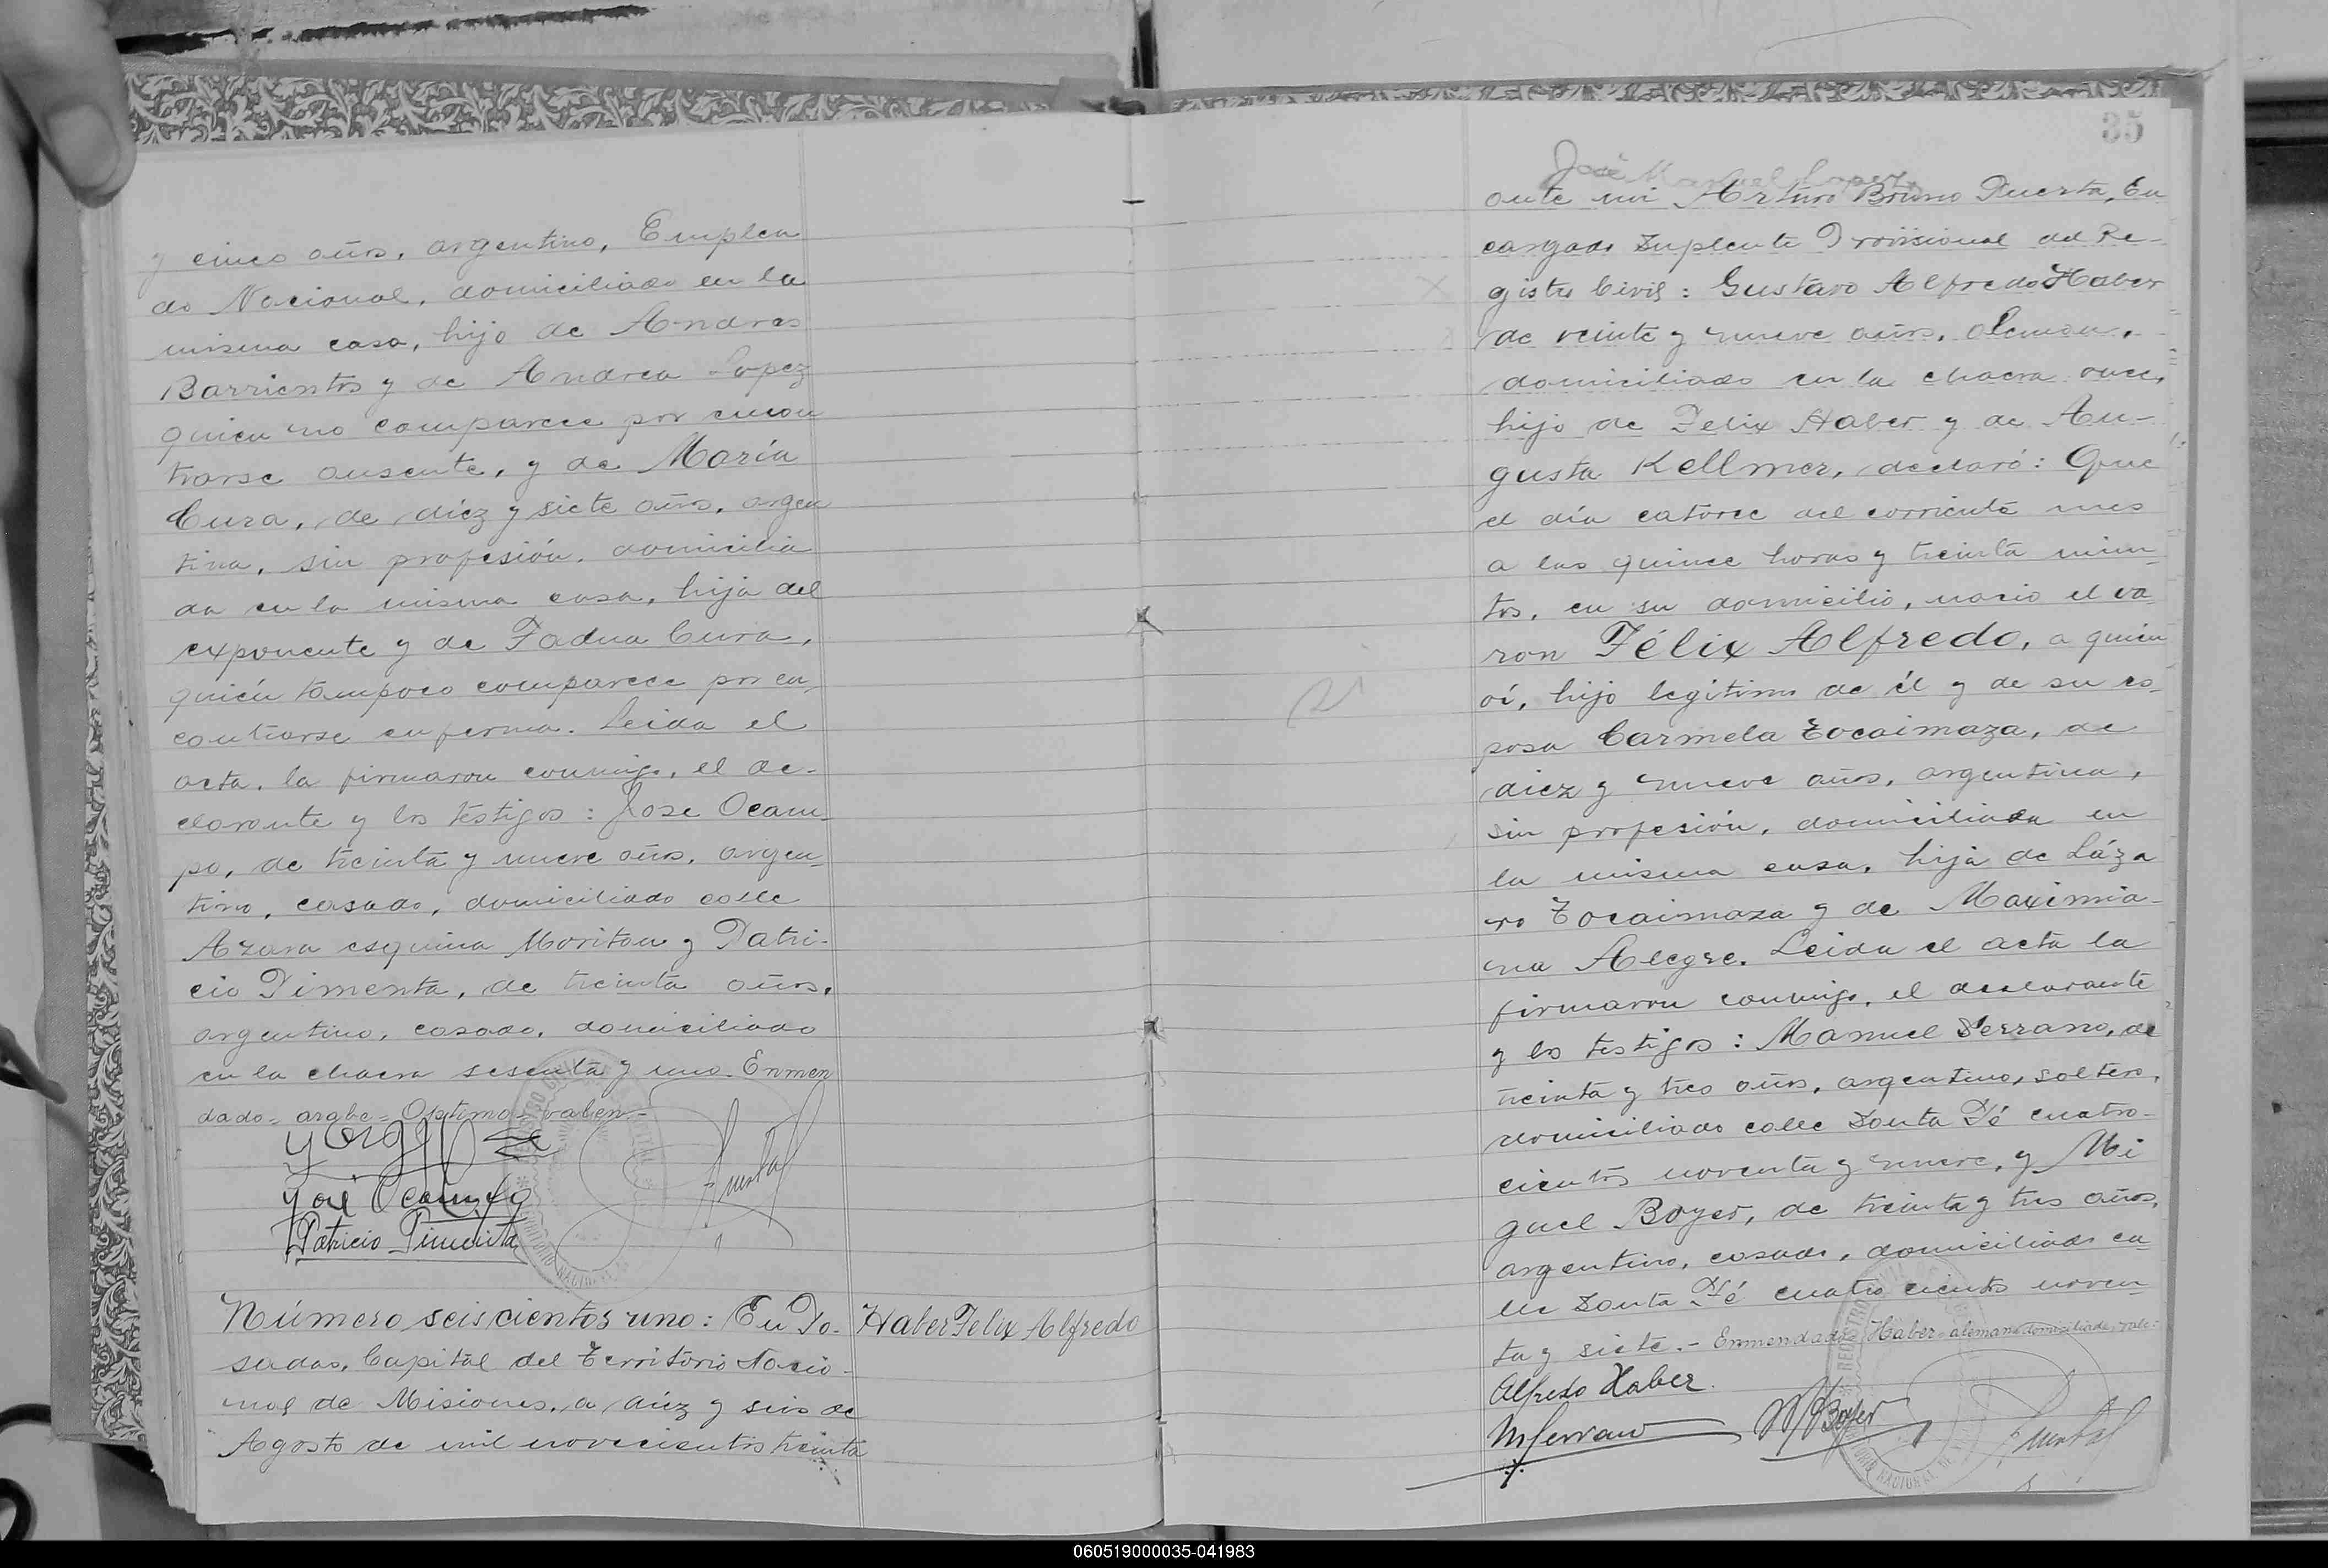 y cinco años, argentino, Emplea
do Nacional, domiciliado en la
misma casa, hijo de Andres
Barrientos y de Andrea Lopez
quien no comparece por encon
trarse ausente, y de María
Cura, de diéz y siete años, argen
tina, sin profesión, domicilia
da en la misma casa, hija del
exponente y de Fadua Cura,
quién tampoco comparece por en
contrarse enferma. Leida el
acta, la firmaron conmigo, el de-
clarante y los testigos: Jose Ocam-
po, de treinta y nueve años, argen-
tino, casado, domiciliado calle
Azara esquina Moritan y Patri-
cio Pimenta, de treinta años,
argentino, casado, domiciliado
en la chacra sesenta y uno. Enmen
dado= arabe= Valen-
José Ocampo
Patricio Pimenta
Número seiscientos uno: En Po-
sadas, Capital del Territorio Nacio-
nal de Misiones, a diéz y seis de
Agosto de mil novecientos treinta
Haber Felix Alfredo
35
José Manuel Lopez
ante mi Arturo Bruno Puerta, En
cargado Suplente Provisional del Re-
gistro Civil: Gustavo Alfredo Haber
de veinte y nueve años, aleman,
domiciliado en la chacra once,
hijo de Felix Haber y de Au-
gusta Kellmer, declaró: Que
el día catorce del corriente mes
a las quince horas y treinta minu-
tos, en su domicilio, nació el va-
ron Félix Alfredo, a quien
ví, hijo legítimo de él y de su es-
posa Carmela Tocaimaza, de
diez y nueve años, argentina,
sin profesión, domiciliada en
la misma casa, hija de Láza
ro Tocaimaza y de Maximia-
na Alegre. Leida el acta la
firmaron conmigo, el declarante
y los testigos: Manuel Serrano, de
treinta y tres años, argentino, soltero,
domiciliado calle Santa Fé cuatro-
cientos noventa y nueve, y Mi
guel Boyer, de treinta y tres años,
argentino, casado, domiciliado ca-
lle Santa Fé cuatro cientos noven-
ta y siete.- Enmendado= Haber= aleman= domiciliada= vale=
Alfredo Haber
MSerrano
MBoyer
060519000035-041983